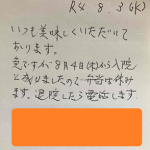 R4. 8. 3 (水)
いつも美味しくいただいて
おります。
急ですが8月4日(木)から入院
と成りましたので弁当は休み
ます。退院したら電話します。